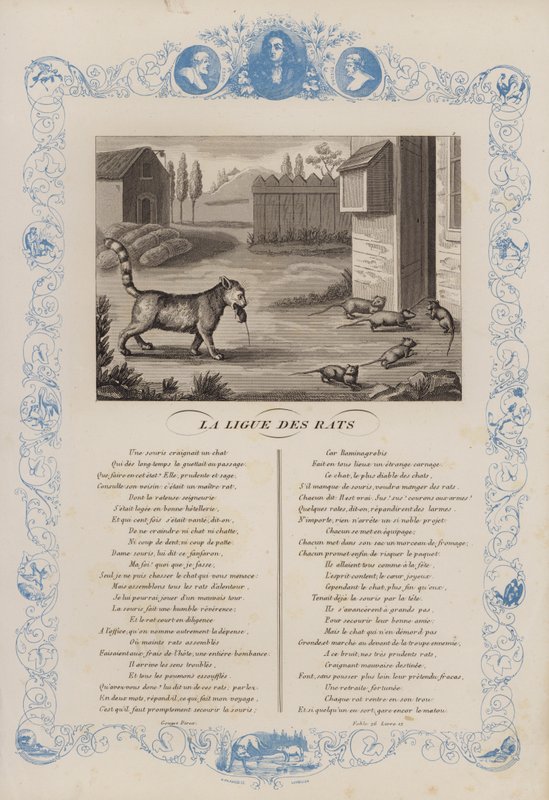 LA LIGUE DES RATS
Une souris craignait un chat
Qui dès long-temps la guettait au passage.
Que faire en cet état? Elle, prudente et sage,
Consulte son voisin: c'était un maître rat,
Dont la rateuse seigneurie
S'était logée en bonne hôtellerie,
Et qui cent fois s'était vanté, dit-on,
De ne craindre ni chat ni chatte,
Ni coup de dent, ni coup de patte.
Dame souris, lui dit ce fanfaron,
Ma foi! quoi que je fasse,
Seul je ne puis chasser le chat qui vous menace:
Mais assemblons tous les rats d'alentour,
Je lui pourrai jouer d'un mauvais tour.
La souris fait une humble révérence;
Et le rat court en diligence
A l'office, qu'on nomme autrement la dépense,
Où maints rats assemblés
Faisaient aux frais de l'hôte, une entière bombance.
Il arrive les sens troublés,
Et tous les poumons essoufflés.
Qu'avez-vous donc? lui dit un de ces rats; parlez.
En deux mots, répond-il, ce qui fait mon voyage,
C'est qu'il faut promptement secourir la souris;
Car Raminagrobis
Fait en tous lieux un étrange carnage.
Ce chat, le plus diable des chats,
S'il manque de souris, voudra manger des rats.
Chacun dit: Il est vrai. Sus! sus! courons aux armes!
Quelques rates, dit-on, répandirent des larmes.
N'importe, rien n'arrête un si noble projet:
Chacun se met en équipage;
Chacun met dans son sac un morceau de fromage;
Chacun promet enfin de risquer le paquet.
Ils allaient tous comme à la fête,
L'esprit content, le cœur joyeux.
Cependant le chat, plus fin qu'eux,
Tenait déjà la souris par la tête.
Ils s'avancèrent à grands pas
Pour secourir leur bonne amie:
Mais le chat qui n'en démord pas
Gronde, et marche au devant de la troupe ennemie.
A ce bruit, nos très prudents rats,
Craignant mauvaise destinée,
Font, sans pousser plus loin leur prétendu fracas,
Une retraite fortunée.
Chaque rat rentre en son trou:
Et si quelqu'un en sort, gare encor le matou.
Fable 26 Livre 12